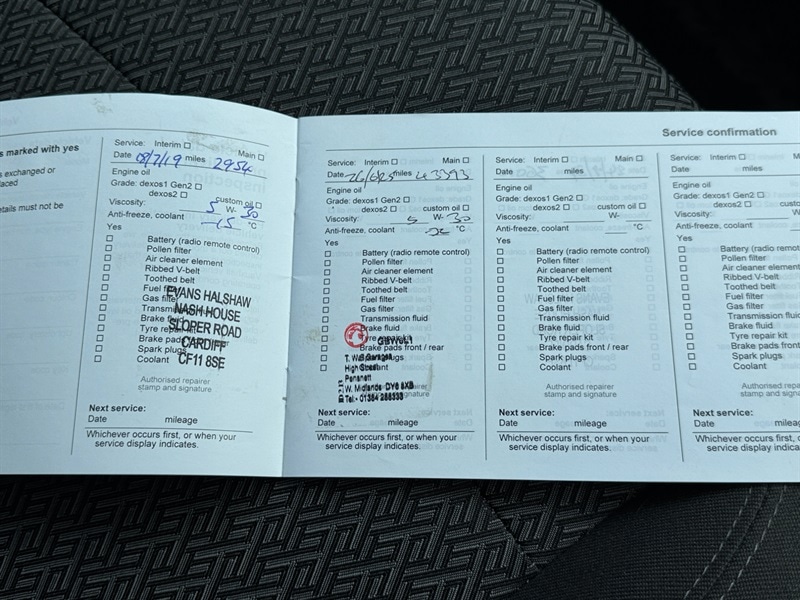 Service confirmation
s marked with yes
s exchanged or
laced
etails must not be
Service: Interim ☐ Main ☐
Date 08/7/19 miles 2954
Engine oil
Grade: dexos1 Gen2 ☐
dexos2 ☐ custom oil ☐
Viscosity: 5 W- 30
Anti-freeze, coolant -15 °C
Yes
☐ Battery (radio remote control)
☐ Pollen filter
☐ Air cleaner element
☐ Ribbed V-belt
☐ Toothed belt
☐ Fuel
☐ Gas filter
☐
☐ Brake
☐ Tyre
☐ Brake
☐ Spark plugs
☐ Coolant
EVANS HALSHAW
NASH HOUSE
SLOPER ROAD
CARDIFF
CF11 8SE
Authorised repairer
stamp and signature
Next service:
Date mileage
Whichever occurs first, or when your
service display indicates.
Service: Interim ☐ Main ☐
Date miles 43393
Engine oil
Grade: dexos1 Gen2 ☐
dexos2 ☐ custom oil ☐
Viscosity: 5 W- 30
Anti-freeze, coolant °C
Yes
☐ Battery (radio remote control)
☐ Pollen filter
☐ Air cleaner element
☐ Ribbed V-belt
☐ Toothed belt
☐ Fuel filter
☐ Gas filter
☐ Transmission fluid
☐ Brake fluid
☐ Tyre repair kit
☐ Brake pads front / rear
☐ plugs
☐
High Street
Pensnett
W. Midlands DY6 8XB
repairer
signature
Next service:
Date mileage
Whichever occurs first, or when your
service display indicates.
Service: Interim ☐ Main ☐
Date miles
Engine oil
Grade: dexos1 Gen2 ☐
dexos2 ☐ custom oil ☐
Viscosity: W-
Anti-freeze, coolant °C
Yes
☐ Battery (radio remote control)
☐ Pollen filter
☐ Air cleaner element
☐ Ribbed V-belt
☐ Toothed belt
☐ Fuel filter
☐ Gas filter
☐ Transmission fluid
☐ Brake fluid
☐ Tyre repair kit
☐ Brake pads front / rear
☐ Spark plugs
☐ Coolant
Authorised repairer
stamp and signature
Next service:
Date mileage
Whichever occurs first, or when your
service display indicates.
Service: Interim ☐ M
Date miles
Engine oil
Grade: dexos1 Gen2 ☐
dexos2 ☐ custom
Viscosity: W-
Anti-freeze, coolant
Yes
☐ Battery (radio remote co
☐ Pollen filter
☐ Air cleaner element
☐ Ribbed V-belt
☐ Toothed belt
☐ Fuel filter
☐ Gas filter
☐ Transmission fluid
☐ Brake fluid
☐ Tyre repair kit
☐ Brake pads front / rear
☐ Spark plugs
☐ Coolant
Authorised repair
stamp and signatu
Next service:
Date mileage
Whichever occurs first, or when
service display indicates.